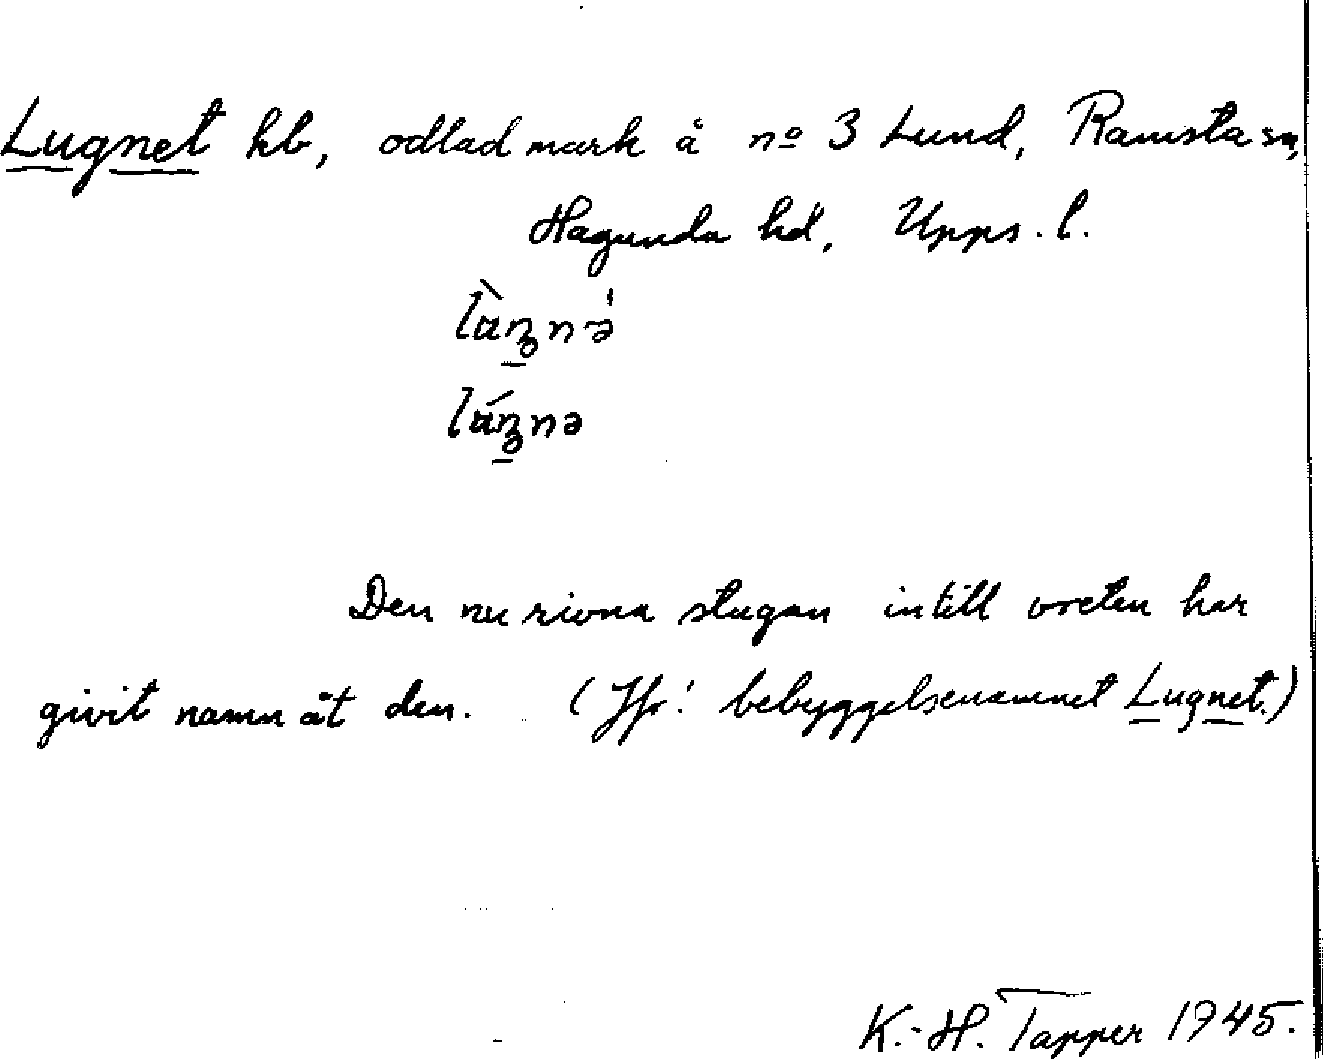 Lugnet hb, odlad mark å nº 3 Lund, Ramsta sn,
Hagunda hd, Upps. l.
Den nu rivna stugan intill vreten har
givit namn åt den. (Jfr: bebyggelsenamnet Lugnet.)
K.-H. Tapper 1945.